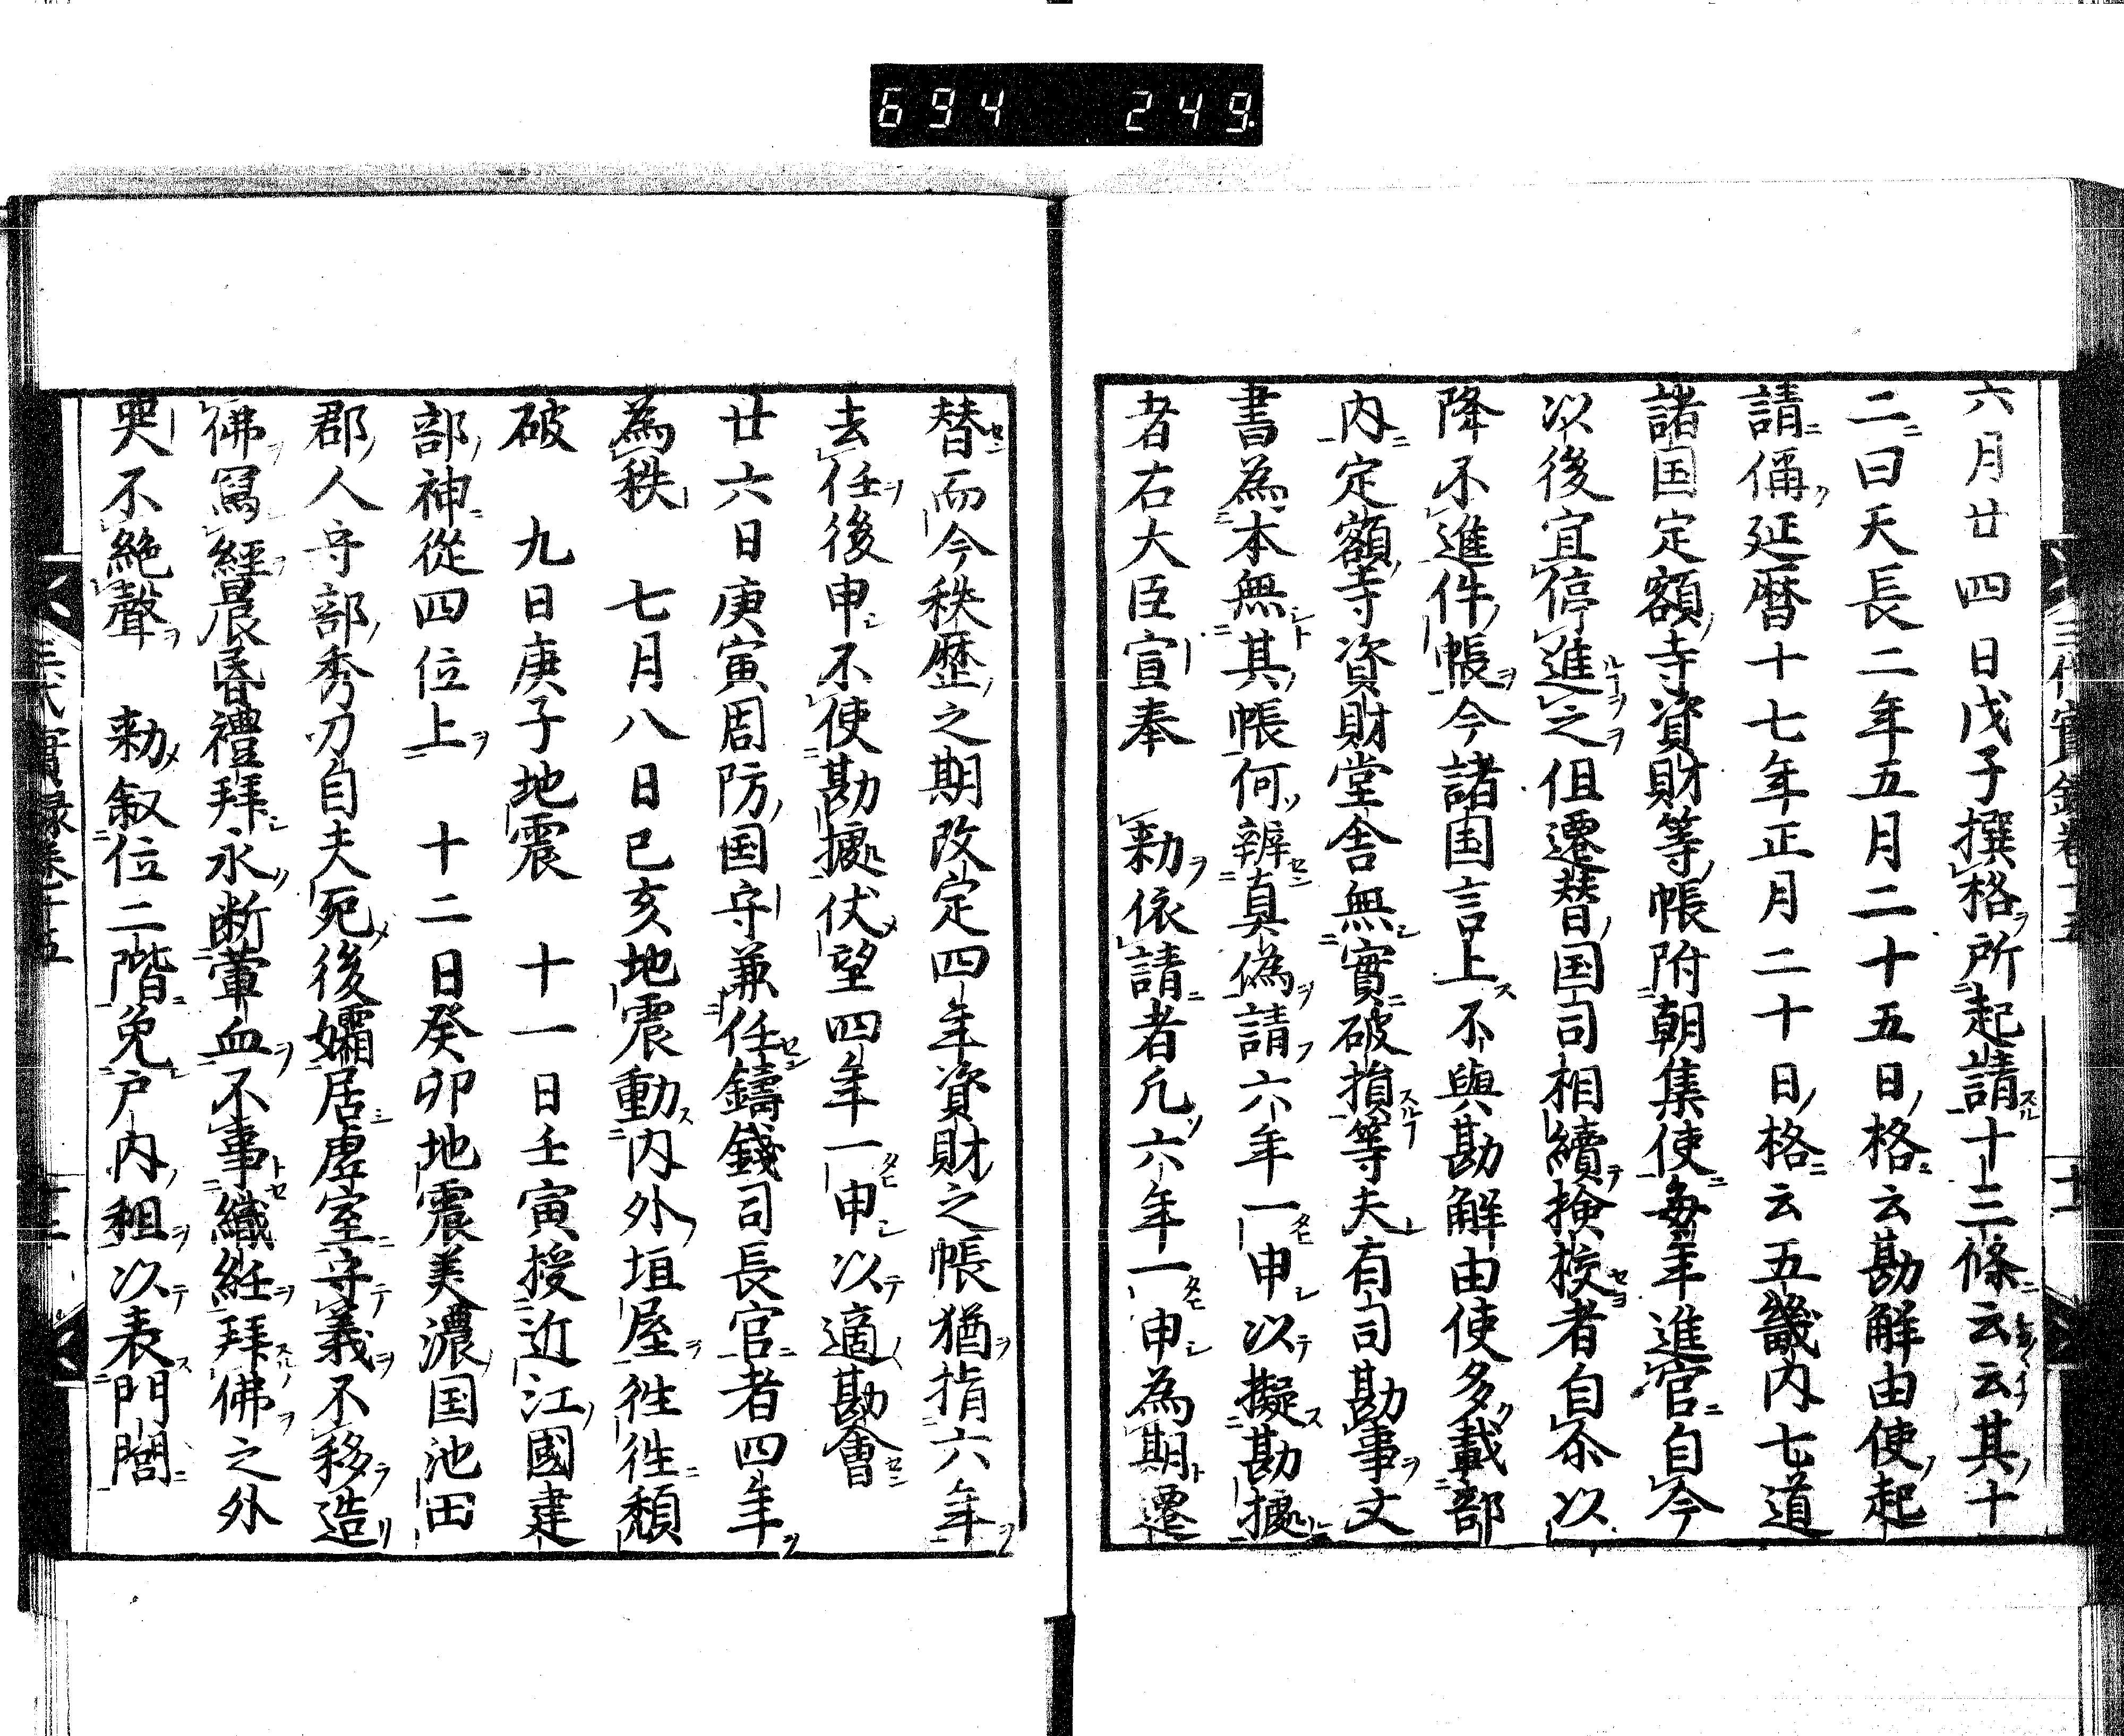 694 249
六月廿四日戊子撰格所起請十三條云云其十
二曰天長二年五月二十五日格云勘解由使起
請偁延暦十七年正月二十日格云五畿内七道
諸国定額寺資財等帳附朝集使毎年進官自今
以後宜停進之但遷替国司相續撿校者自尒以
降不進件帳今諸国言上不與勘解由使多載部
内定額寺資財堂舍無實破損等夫有司勘事文
書為本無其帳何辨真偽請六年一申以擬勘據
者右大臣宣奉　勅依請者凡六年一申為期遷
替而今秩歴之期改定四年資財之帳猶指六年
去任後申不使勘據伏望四年一申以適勘會
廿六日庚寅周防国守兼任鑄錢司長官者四年
為秩　七月八日己亥地震動内外垣屋往往頽
破　九日庚子地震　十一日壬寅授近江國建
部神從四位上　十二日癸卯地震美濃国池田
郡人守部秀刀自夫死後孀居虚室守義不移造
佛冩經晨昏禮拜永断葷血不事織紝拜佛之外
哭不絶聲　勅叙位二階免戸内租以表門閭